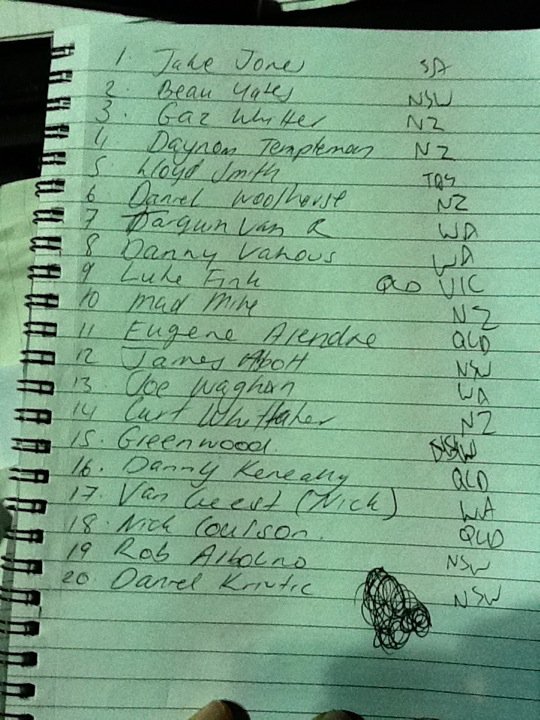 1. Jake Jones SA
2. Beau Yates NSW
3. Gaz Whitter NZ
4. Daynom Templeman NZ
5. Lloyd Smith TAS
6 Daniel Woolhouse NZ
7 Van R WA
8 Danny Vahous WA
9 Luke Fink QLD VIC
10 Mad Mike NZ
11 Eugene Arendse QLD
12 James Abott NSW
13. Joe Waghan WA
14 Curt Whittaker NZ
15. Greenwood.
16. Danny Keneally QLD
17. Van Geest (Nick) WA
18. Nick Coulson. QLD
19 Rob NSW
20. Daniel NSW